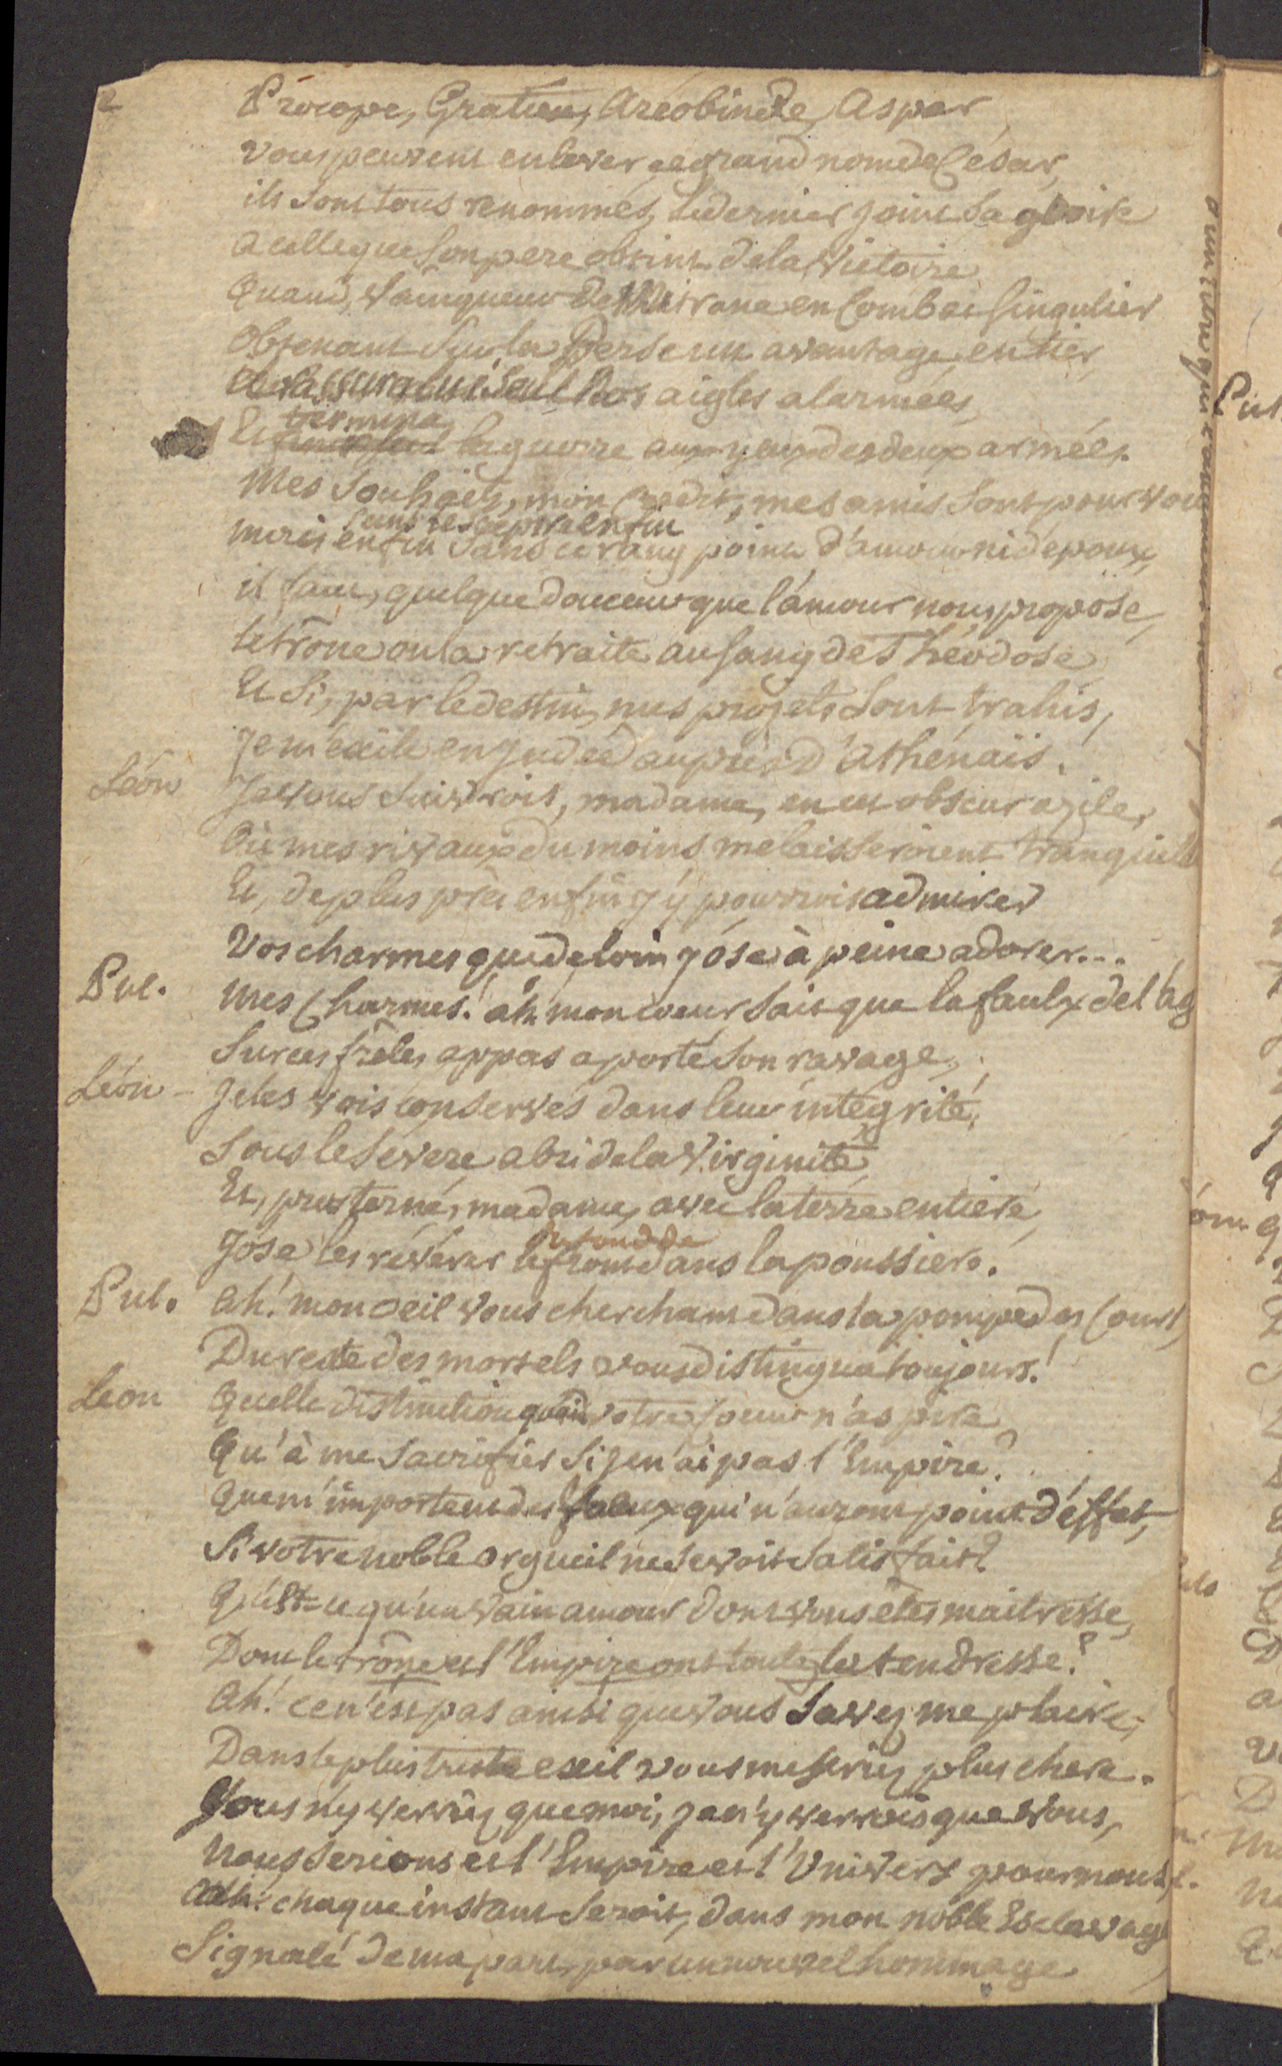 2
Procope, Gratien, Areobinde, Aspar
vous peuvent enlever ce grand nom de César,
ils sont tous renommés, le dernier joint sa gloire
a celle que son pere obtint de la Victoire
Quand, vainqueur de en Combat singulier
Obtenant sur la Perse un avantage entier
Il rassura lui seul Nos aigles alarmées
termina
Et la guerre aux yeux des deux armées.
Mes souhaits, mon Credit, mes amis sont pour vou
enfin
mais enfin sans ce rang point d'amour ni d'epoux,
il faut, quelque douceur que l'amour nous propose,
le trône ou la retraite au sang de Théodose
Et si, par le destin, nus projets sont trahis,
Je m'exile en Judée auprès d'Athénaïs.
Léon Je vous suivrois, madame, en cet obscur azile,
Où mes rivaux du moins me laisseroient tranquile
Et, de plus près enfin j'y pourrois admirer
Vos charmes que de loin j'ose à peine adorer...
Pul. mes Charmes! ah mon coeur sait que la faulx de l'ag
Sur ces frêles appas a porté son ravage,
Léon - Je les vois conservés dans leur intégrité,
Sous le severe abri de la Virginité
Et, prosterné, madame, avec la terre entiere,
du fond de
J'ose les révérer le front dans la poussiere.
Pul. Ah! mon oeil vous cherchant dans la pompe des Cours,
Du reste des mortels vous distingua toujours!
Leon Quelle distinction quoi votre coeur n'aspire
Qu'à me sacrifier si je n'ai pas l'Empire?
Que m'importent des voeux qui n'auront point d'éffet,
Si votre noble orgueil ne se voit satisfait?
Qu'est-ce qu'un vain amour dont vous êtes maitresse,
Dont le trône et l'Empire ont toute la tendresse?
Ah! ce n'est pas ainsi que vous savez me plaire,
Dans le plus triste exil vous me seriez plus chere.
Vous n'y verriez que moi, je n'y verrois que vous,
Nous serions et l'Empire et l'Univers pour nous,
Ah! chaque instant seroit, dans mon noble Esclavage
Signalé de ma part, par un nouvel hommage